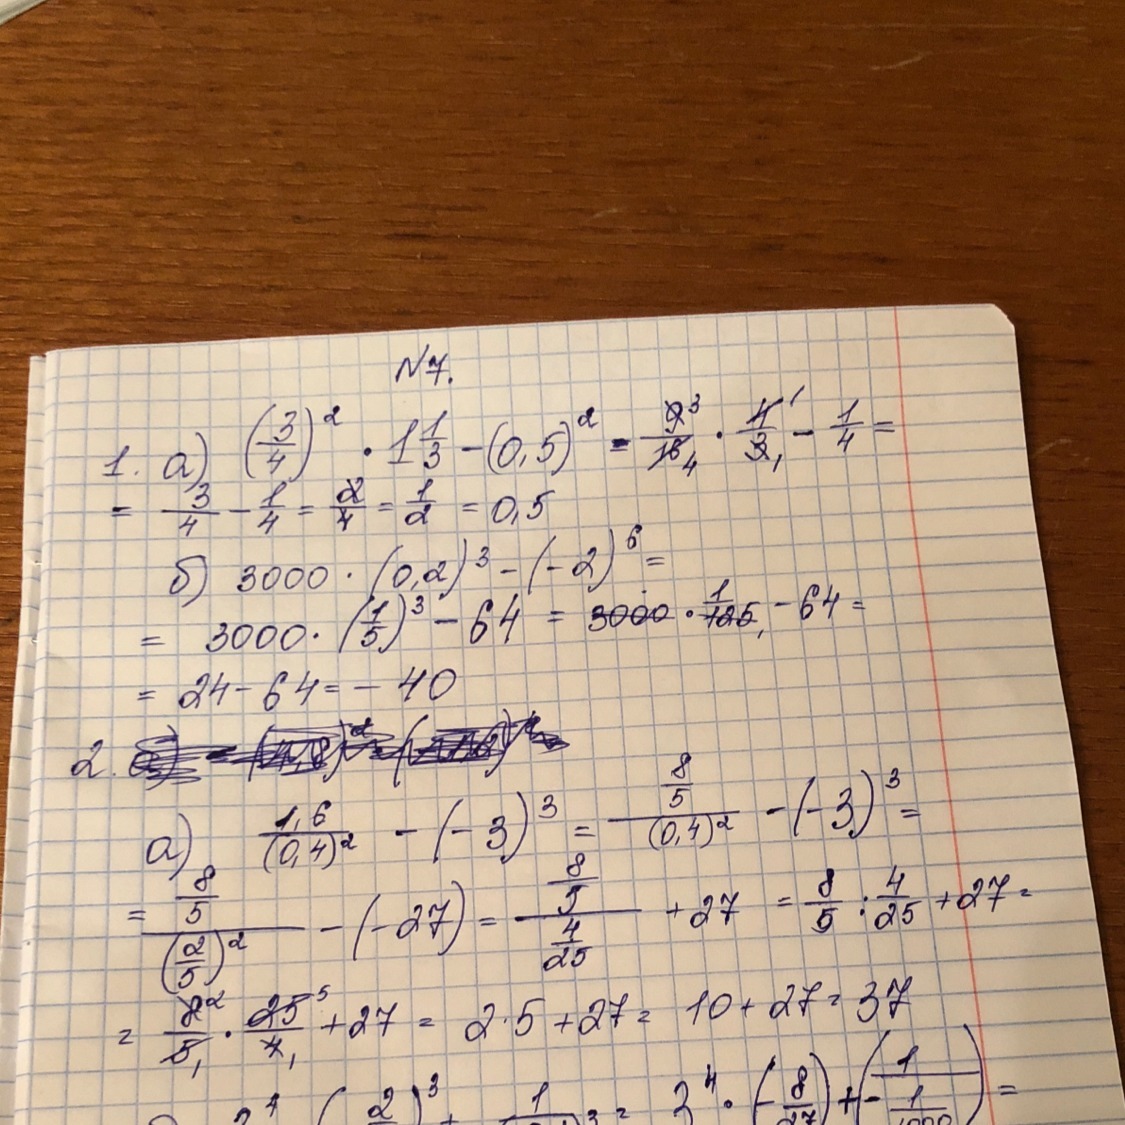 N7.
1. а) (3/4)² · 1 1/3 - (0,5)² = 9³/16₄ · 4¹/3₁ - 1/4 =
= 3/4 - 1/4 = 2/4 = 1/2 = 0,5
б) 3000 · (0,2)³ - (-2)⁶ =
= 3000 · (1/5)³ - 64 = 3000 · 1/125₁ - 64 =
= 24 - 64 = - 40
2.
а) 1,6/(0,4)² - (-3)³ = (8/5)/(0,4)² - (-3)³ =
= (8/5)/(2/5)² - (-27) = (8/5)/(4/25) + 27 = 8/5 : 4/25 + 27 =
= 8²/5₁ · 25⁵/4₁ + 27 = 2·5 + 27 = 10 + 27 = 37
3⁴ · (-8/27) + (- 1/(1/1000)) =